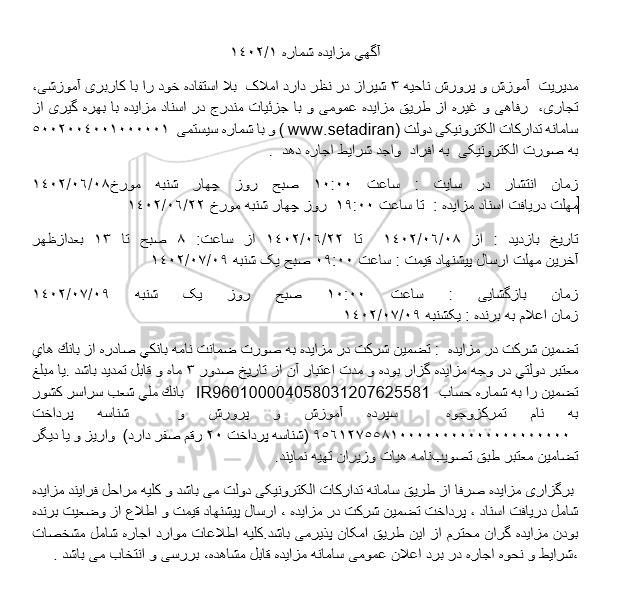 آگهي مزايده شماره ۱۴۰۲/۱
مدیریت آموزش و پرورش ناحیه ۳ شیراز در نظر دارد املاک بلا استفاده خود را با کاربری آموزشی،
تجاری، رفاهی و غیره از طریق مزایده عمومی و با جزئیات مندرج در اسناد مزایده با بهره گیری از
سامانه تدارکات الکترونیکی دولت (www.setadiran ) و با شماره سیستمی ۵۰۰۲۰۰۴۰۰۱۰۰۰۰۰۱
به صورت الکترونیکی به افراد واجد شرایط اجاره دهد .
زمان انتشار در سایت : ساعت ۱۰:۰۰ صبح روز چهار شنبه مورخ۱۴۰۲/۰۶/۰۸
مهلت دریافت اسناد مزایده : تا ساعت ۱۹:۰۰ روز چهار شنبه مورخ ۱۴۰۲/۰۶/۲۲
تاریخ بازدید : از ۱۴۰۲/۰۶/۰۸ تا ۱۴۰۲/۰۶/۲۲ از ساعت: ۸ صبح تا ۱۳ بعدازظهر
آخرین مهلت ارسال پیشنهاد قیمت : ساعت ۰۹:۰۰ صبح یک شنبه ۱۴۰۲/۰۷/۰۹
زمان بازگشایی : ساعت ۱۰:۰۰ صبح روز یک شنبه ۱۴۰۲/۰۷/۰۹
زمان اعلام به برنده : یکشنبه ۱۴۰۲/۰۷/۰۹
تضمین شرکت در مزایده : تضمین شرکت در مزایده به صورت ضمانت نامه بانکي صادره از بانك هاي
معتبر دولتي در وجه مزایده گزار بوده و مدت اعتبار آن از تاریخ صدور ۳ ماه و قابل تمدید باشد .یا مبلغ
تضمین را به شماره حساب IR960100004058031207625581 بانك ملي شعب سراسر کشور
به نام تمرکزوجوه سپرده آموزش و پرورش و شناسه پرداخت
(شناسه پرداخت ۲۰ رقم صفر دارد) واریز و یا دیگر
تضامین معتبر طبق تصویب‌نامه هیات وزیران تهیه نمایند.
برگزاری مزایده صرفا از طریق سامانه تدارکات الکترونیکی دولت می باشد و کلیه مراحل فرایند مزایده
شامل دریافت اسناد ، پرداخت تضمین شرکت در مزایده ، ارسال پیشنهاد قیمت و اطلاع از وضعیت برنده
بودن مزایده گران محترم از این طریق امکان پذیرمی باشد.کلیه اطلاعات موارد اجاره شامل مشخصات
،شرایط و نحوه اجاره در برد اعلان عمومی سامانه مزایده قابل مشاهده، بررسی و انتخاب می باشد .
ParsNamadData